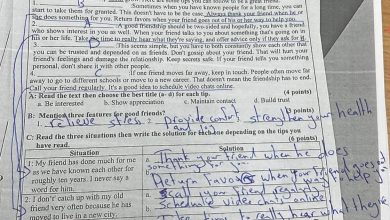 B
Sometimes when you have known people for a long time, you can
start to take them for granted. This doesn't have to be the case. Always thank your friend when he or
she does something for you. Return favors when your friend goes out of his or her way to help you.
A good friendship should be two-sided and hopefully, you have a friend
who shows interest in you as well. When your friend talks to you about something that's going on in
his or her life. Take time to really hear what they're saying, and offer advice only if they ask for it.
3. This seems simple, but you have to both constantly show each other that
you can be trusted and depended on as friends. Don't gossip about your friend. That will hurt your
friend's feelings and damage the relationship. Keep secrets safe. If your friend tells you something
personal, don't share it with other people.
4. If one friend moves far away, keep in touch. People often move far
away to go to different schools or to move to a new career. That doesn't mean the friendship has to end.
Call your friend regularly. It's a good idea to schedule video chats online.
A: Read the text then choose the best title (a- d) for each tip. (4 points)
a. Be interested b. Show appreciation c. Maintain contact d. Build trust
B: Mention three features for good friends? (3 points)
relieve stress provide comfort strengthen your health
and joy
C: Read the three situations then write the solution for each one depending on the tips you
have read. (6 marks)
Situation Solution
1: My friend has done much for me
as we have known each other for
roughly ten years. I never say a
word for him.
a. Thank your friend when he does
something
Return favors when your friend goes
2: I don't catch up with my old
friend very often because he has
moved to live in a new city.
a. Call your friend regularly
Schedule video chats online
time to really hear what they